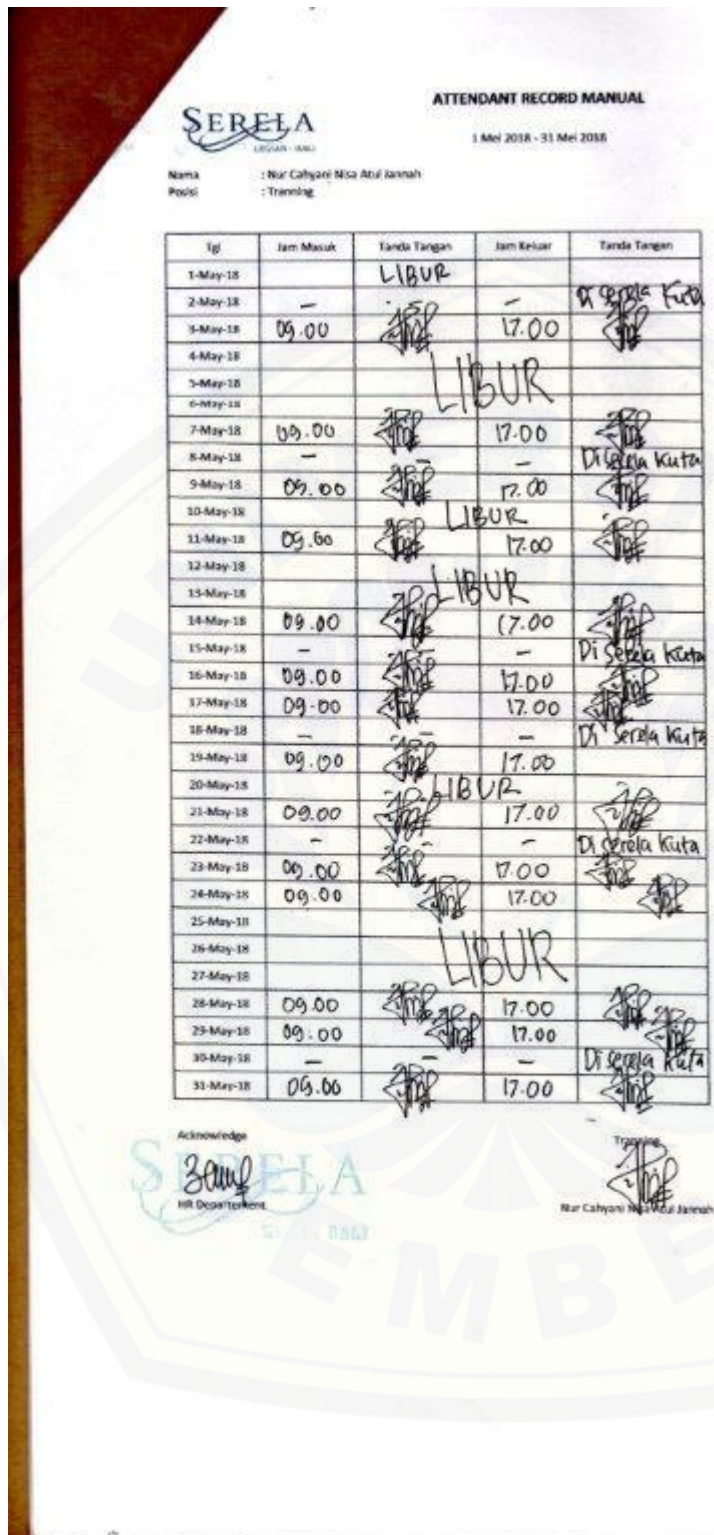 ATTENDANT RECORD MANUAL
SERELA
LEGIAN - BALI
1 Mei 2018 - 31 Mei 2018
Nama : Nur Cahyani Nisa Atul Jannah
Posisi : Tranning
Tgl Jam Masuk Tanda Tangan Jam Keluar Tanda Tangan
1-May-18 LIBUR
2-May-18 – – Di Serela Kuta
3-May-18 09.00 17.00
4-May-18
5-May-18 LIBUR
6-May-18
7-May-18 09.00 17.00
8-May-18 – – – Di Serela Kuta
9-May-18 09.00 17.00
10-May-18 LIBUR
11-May-18 09.00 17.00
12-May-18
13-May-18 LIBUR
14-May-18 09.00 17.00
15-May-18 – – – Di Serela Kuta
16-May-18 09.00 17.00
17-May-18 09.00 17.00
18-May-18 – – – Di Serela Kuta
19-May-18 09.00 17.00
20-May-18 LIBUR
21-May-18 09.00 17.00
22-May-18 – – – Di Serela Kuta
23-May-18 09.00 17.00
24-May-18 09.00 17.00
25-May-18
26-May-18 LIBUR
27-May-18
28-May-18 09.00 17.00
29-May-18 09.00 17.00
30-May-18 – – – Di Serela Kuta
31-May-18 09.00 17.00
Acknowledge Tranning
SERELA
HR Departement Nur Cahyani Nisa Atul Jannah
EMBE